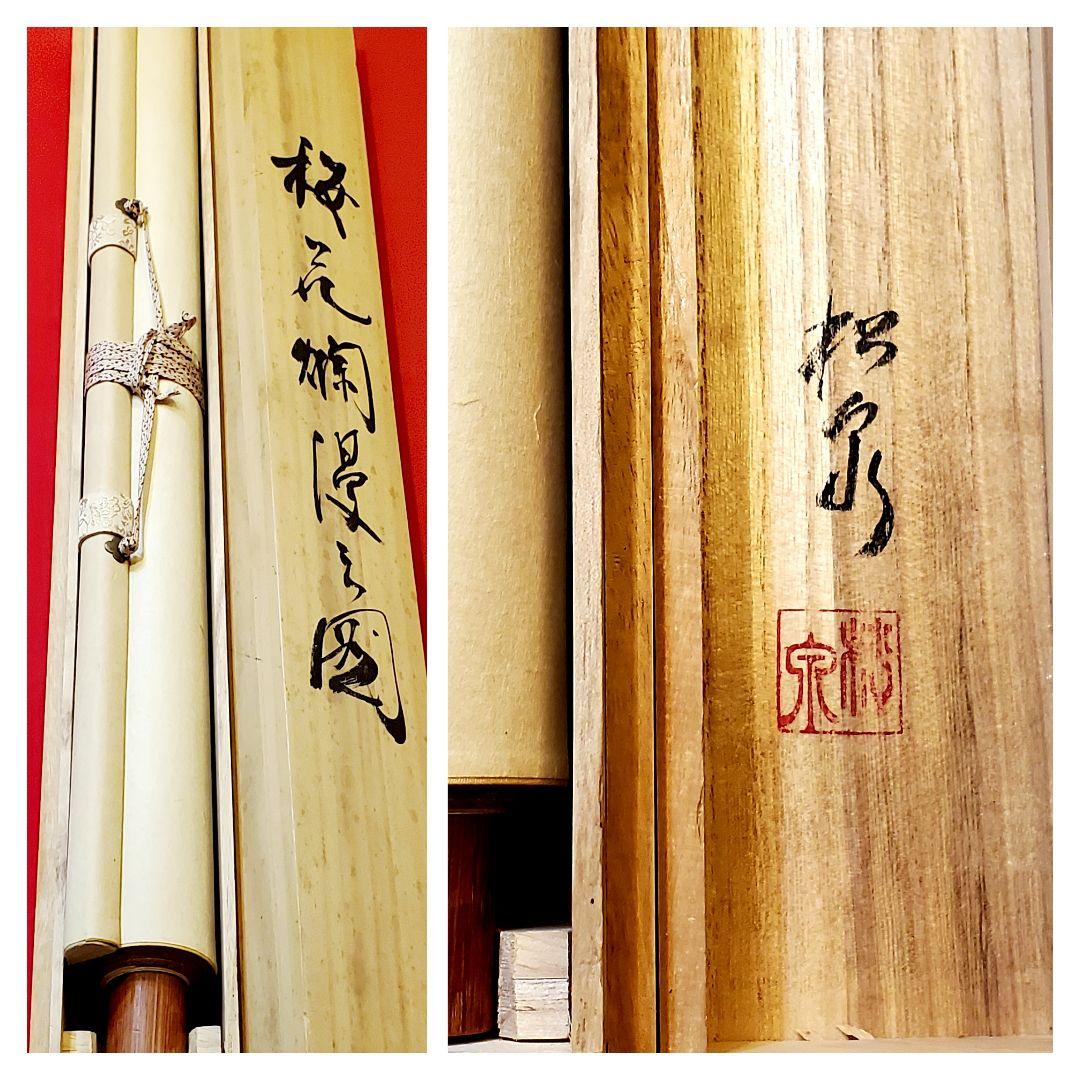 桜花爛漫之圖
松泉
松泉